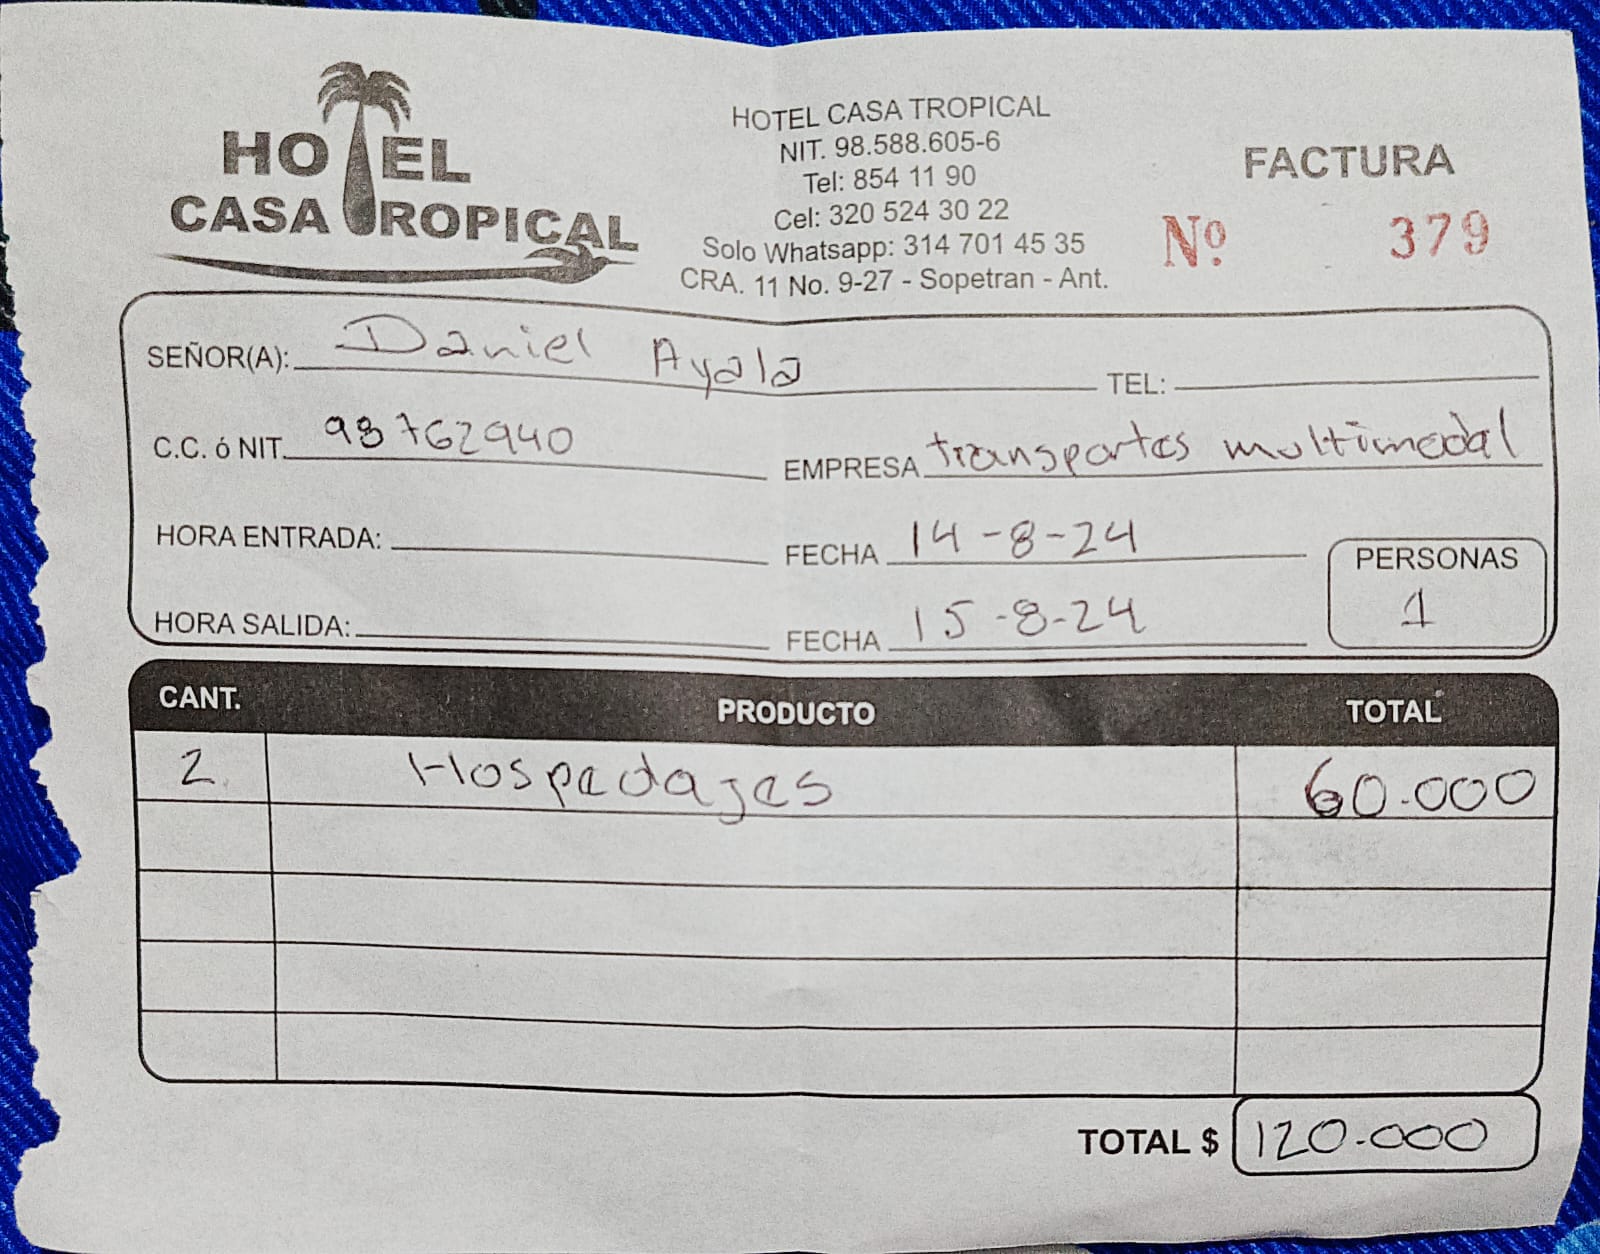 HOTEL
CASA TROPICAL
HOTEL CASA TROPICAL
NIT. 98.588.605-6
Tel: 854 11 90
Cel: 320 524 30 22
Solo Whatsapp: 314 701 45 35
CRA. 11 No. 9-27 - Sopetran - Ant.
FACTURA
Nº 379
SEÑOR(A): Daniel Ayala TEL:
C.C. ó NIT. 98762940 EMPRESA transportes multimodal
HORA ENTRADA: FECHA 14-8-24
HORA SALIDA: FECHA 15-8-24
PERSONAS
1
CANT. PRODUCTO TOTAL
2 Hospedajes 60.000
TOTAL $ 120.000